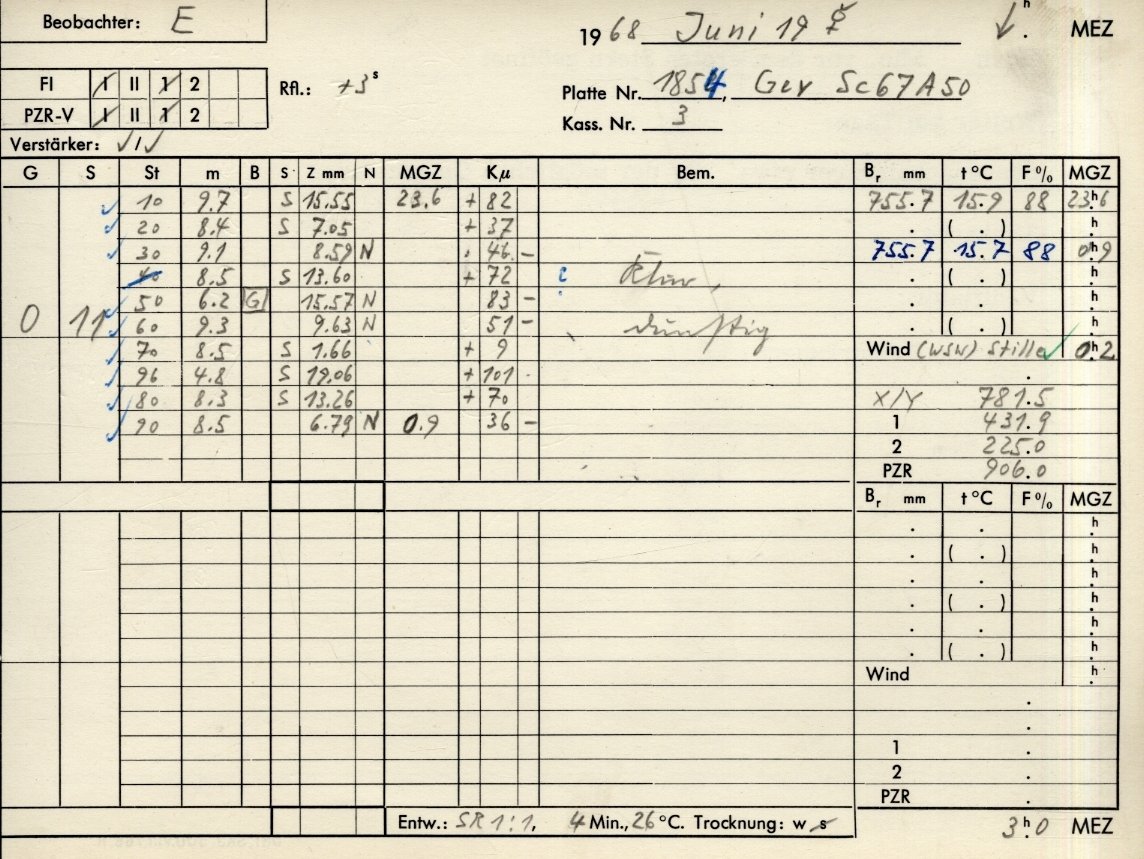 Beobachter: E
1968 Juni 19 h . MEZ
FI I II 1 2
PZR-V I II 1 2
Rfl.: +3 s
Platte Nr. 1854, Gev Sc67A50
Kass. Nr. 3
Verstärker: √/√
G S St m B S Z mm N MGZ Kμ Bem. Br mm t °C F % MGZ
10 9.7 S 15.55 23.6 + 82 755.7 15.9 88 23h6
20 8.4 S 7.05 + 37 . ( . ) h
30 9.1 8.59 N 46 - 755.7 15.7 88 0h9
40 8.5 S 13.60 + 72 klar, . ( . ) h
50 6.2 G 15.57 N 83 - . . h
0 11 60 9.3 9.63 N 51 - dunstig . ( . ) h
70 8.5 S 1.66 + 9 Wind (WSW) Stille 0h2
96 4.8 S 19.06 + 101 .
80 8.3 S 13.26 + 70 X/Y 781.5
90 8.5 6.79 N 0.9 36 - 1 431.9
2 225.0
PZR 906.0
Br mm t °C F % MGZ
. . h
. ( . ) h
. . h
. ( . ) h
. . h
. ( . ) h
Wind h
.
.
1 .
2 .
PZR .
Entw.: SR 1:1, 4 Min., 26 °C. Trocknung: w s
3h0 MEZ